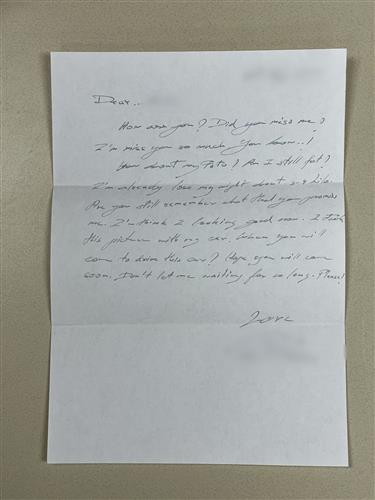 Dear..
How are you? Did you miss me?
I'm miss you so much you know..!
How about my Foto? Am I still fat?
I'm already lose my wight about 3-4 kilo.
Are you still remember what that you promise
me. I'm think I looking good now. I took
this picture with my car. When you will
come to drive this car? Hope you will come
soon. Don't let me waiting for so long. Please!
Love